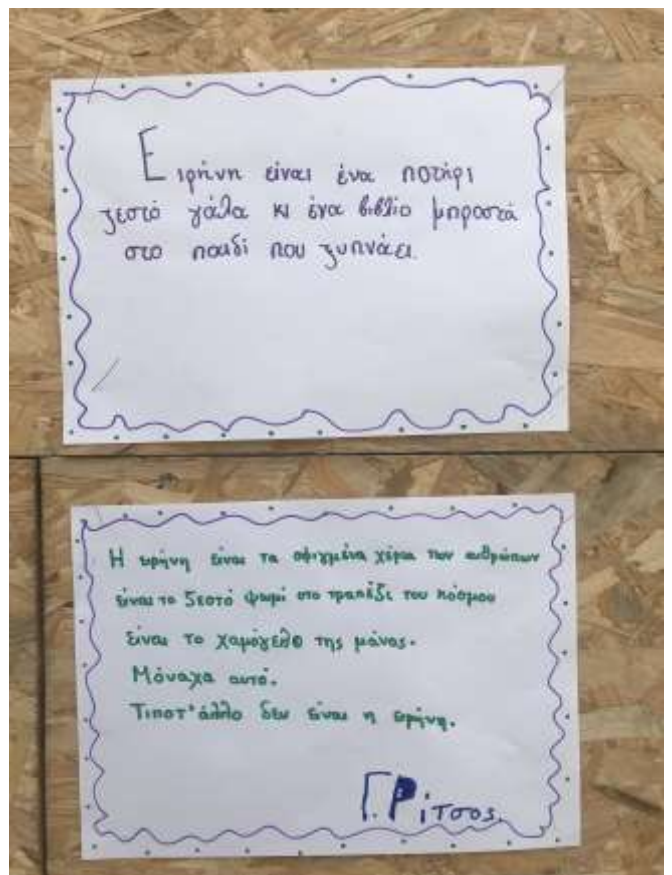 Ειρήνη είναι ένα ποτήρι
ζεστό γάλα κι ένα βιβλίο μπροστά
στο παιδί που ξυπνάει.
Η ειρήνη είναι τα σφιγμένα χέρια των ανθρώπων
είναι το ζεστό ψωμί στο τραπέζι του κόσμου
είναι το χαμόγελο της μάνας.
Μόναχα αυτό.
Τίποτ' άλλο δεν είναι η ειρήνη.
Γ. Ρίτσος.